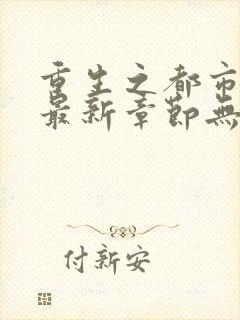 重生之都市
最新章节无
付新安